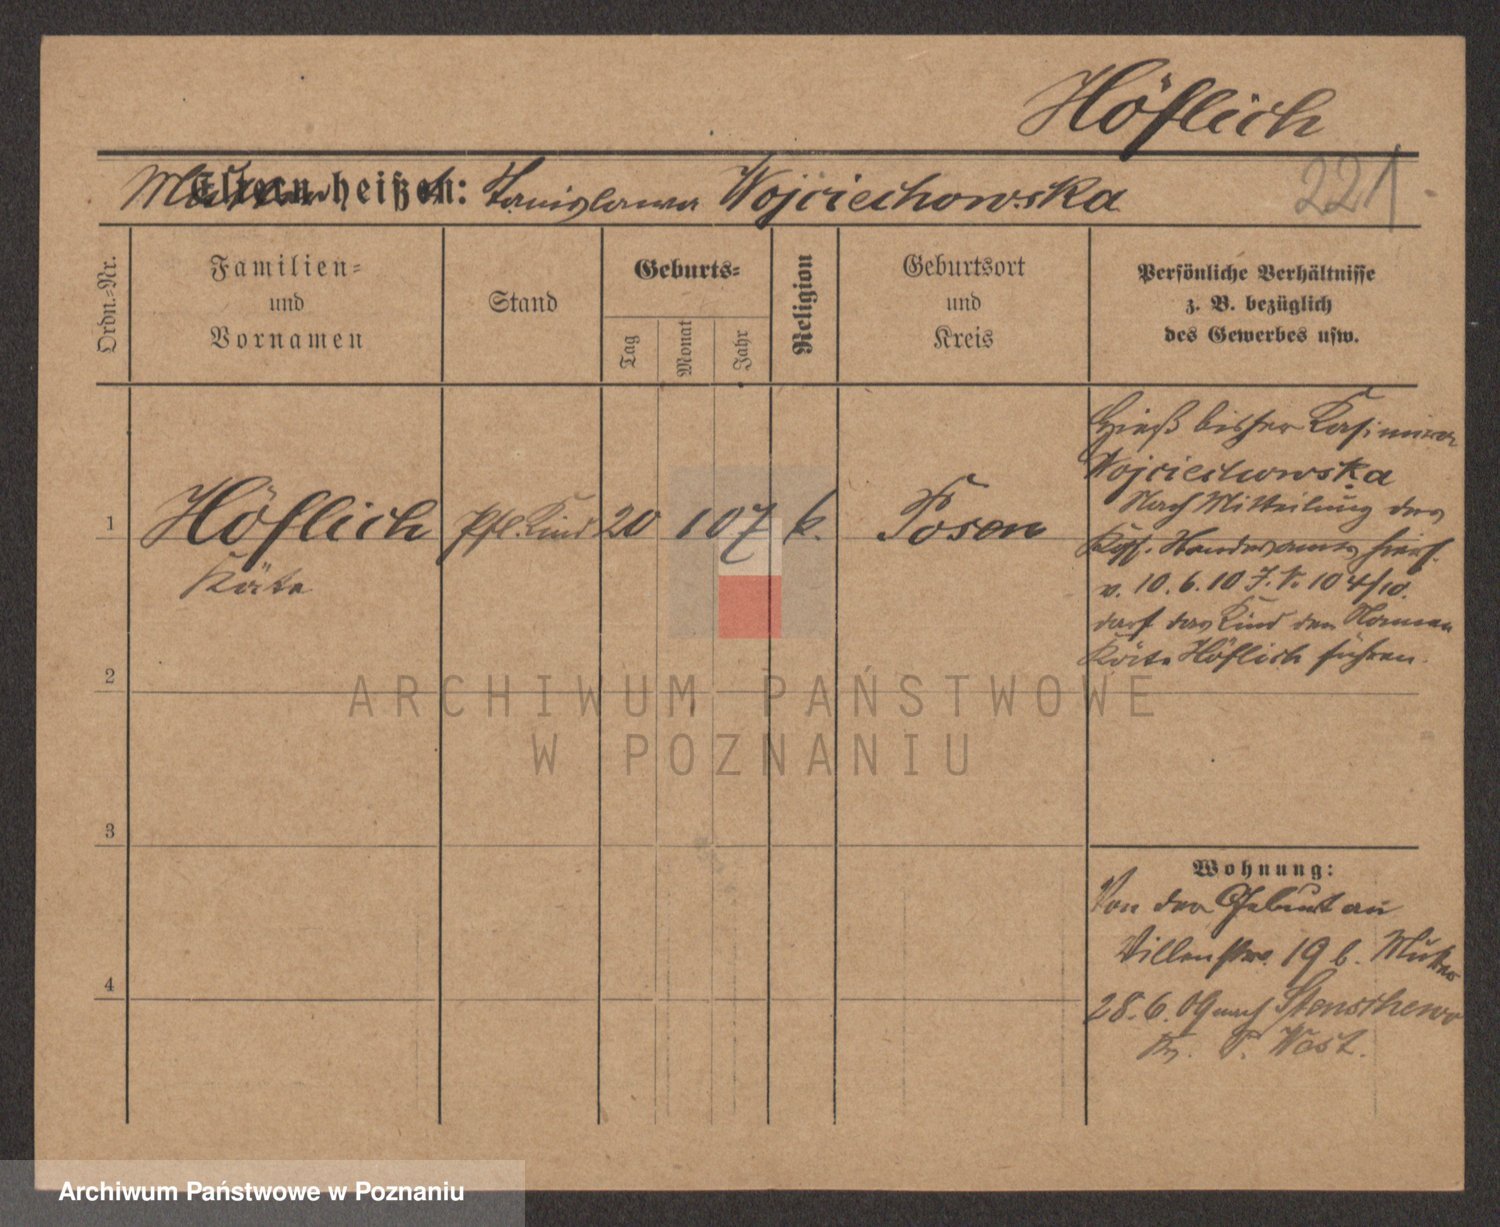 Höflich
Mutter heißt: Stanislawa Wojciechowska
Eltern heißen:
221
Ordn.-Nr.
Familien-
und
Vornamen
Stand
Geburts-
Tag
Monat
Jahr
Religion
Geburtsort
und
Kreis
Persönliche Verhältnisse
z. B. bezüglich
des Gewerbes usw.
1
Höflich
Käte
Pfl. Kind
20
10
7
k.
Posen
Hieß bisher Kasimira
Wojciechowska
Nach Mitteilung des
v. 10.6.10 J. V. 104/10.
darf das Kind den Namen
Käte Höflich führen.
2
3
4
Wohnung:
Von der Geburt an
Villenstr. 19 b. Mutter
28.6.09 nach Stenschewo
Kr. P. West.
ARCHIWUM PAŃSTWOWE
W POZNANIU
Archiwum Państwowe w Poznaniu